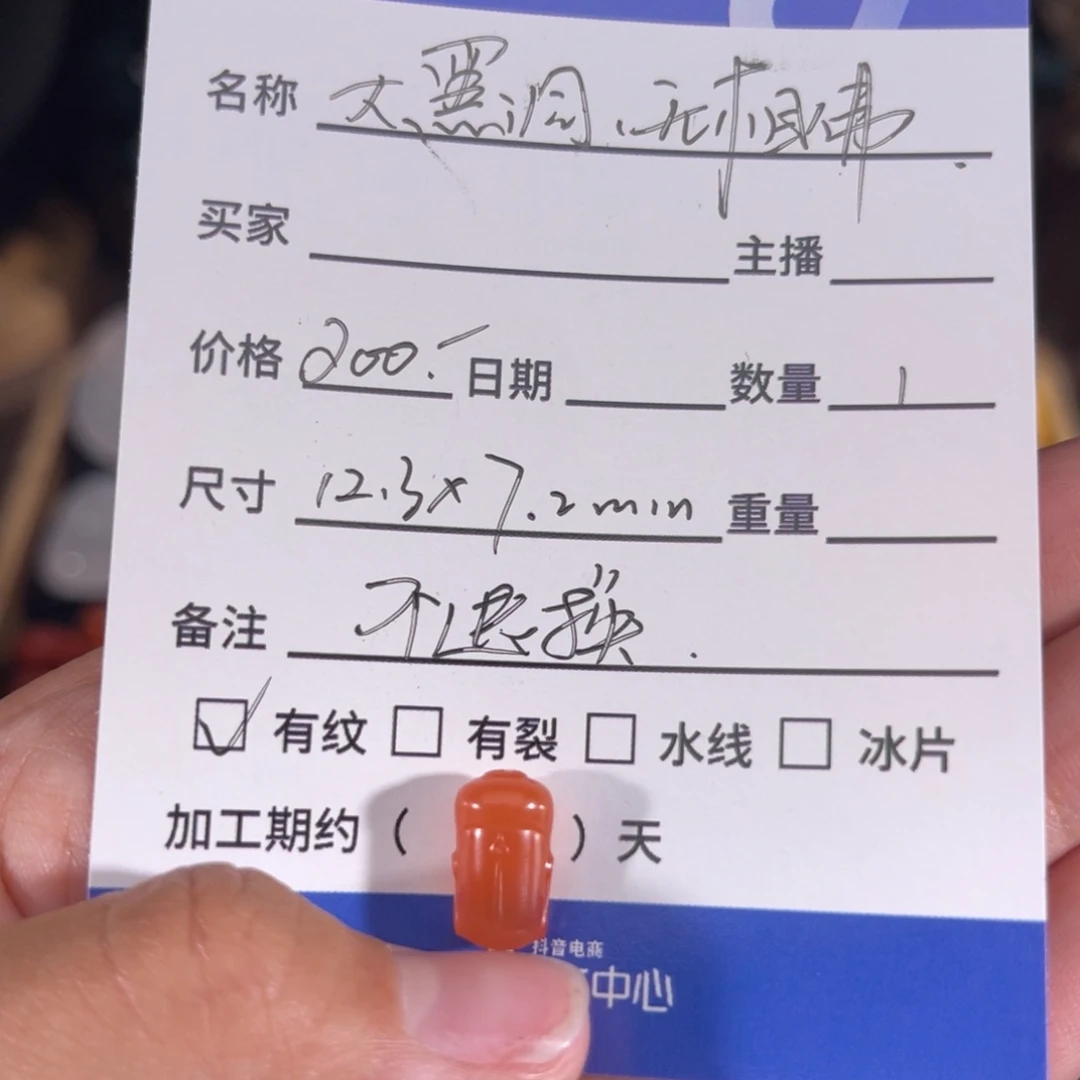 名称 大黑洞、无相佛.
买家 主播
价格 200.- 日期 数量 1
尺寸 12.3×7.2mm 重量
备注 不退换.
☑ 有纹 □ 有裂 □ 水线 □ 冰片
加工期约 ( ) 天
抖音电商
中心